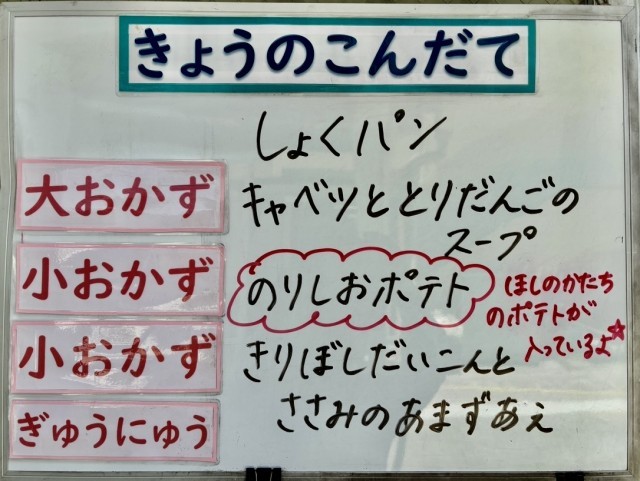 きょうのこんだて
しょくパン
大おかず
キャベツととりだんごの
スープ
小おかず
のりしおポテト
ほしのかたち
のポテトが
入っているよ☆
小おかず
きりぼしだいこんと
ささみのあまずあえ
ぎゅうにゅう